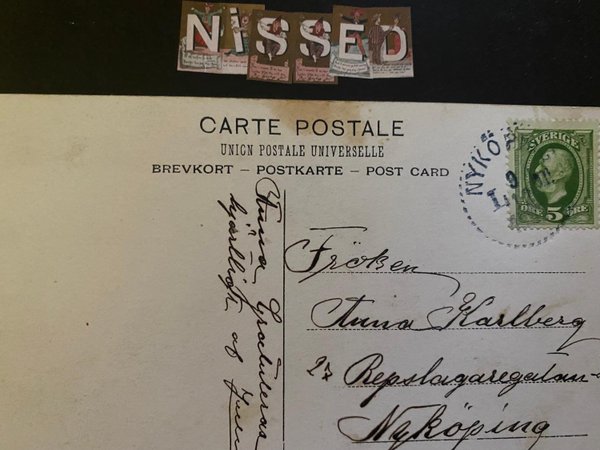 NISSED
CARTE POSTALE
UNION POSTALE UNIVERSELLE
BREVKORT – POSTKARTE – POST CARD
NYKÖP
SVERIGE
5
ÖRE
Fröken
Anna Karlberg
27 Repslagaregatan
Nyköping
Anna Gratuleras
hjärtligt af